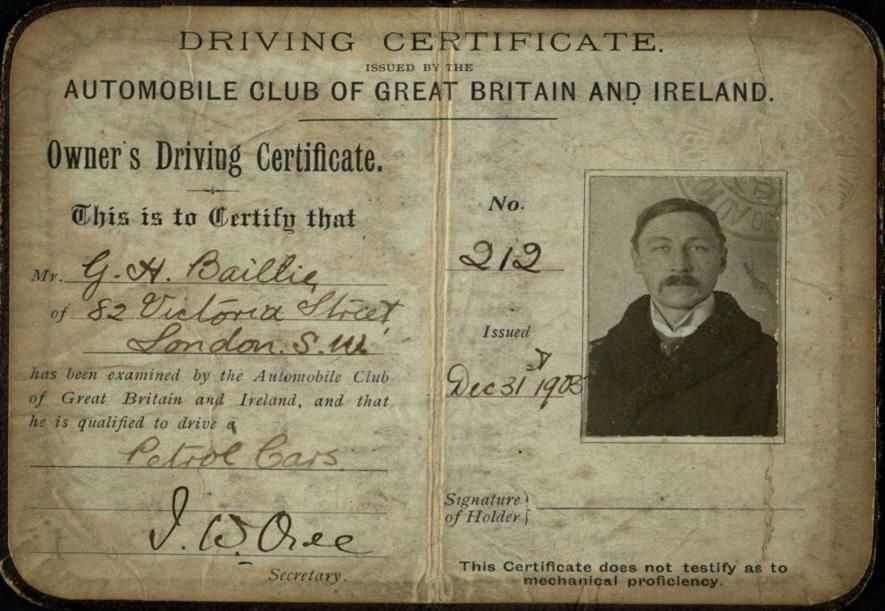 DRIVING CERTIFICATE.
ISSUED BY THE
AUTOMOBILE CLUB OF GREAT BRITAIN AND IRELAND.
Owner's Driving Certificate.
This is to Certify that
Mr. G. H. Baillie,
of 82 Victoria Street,
London. S.W.
has been examined by the Automobile Club
of Great Britain and Ireland, and that
he is qualified to drive a
Petrol Cars
Secretary.
No.
212
Issued
Dec 31st 1903
Signature
of Holder
This Certificate does not testify as to
mechanical proficiency.